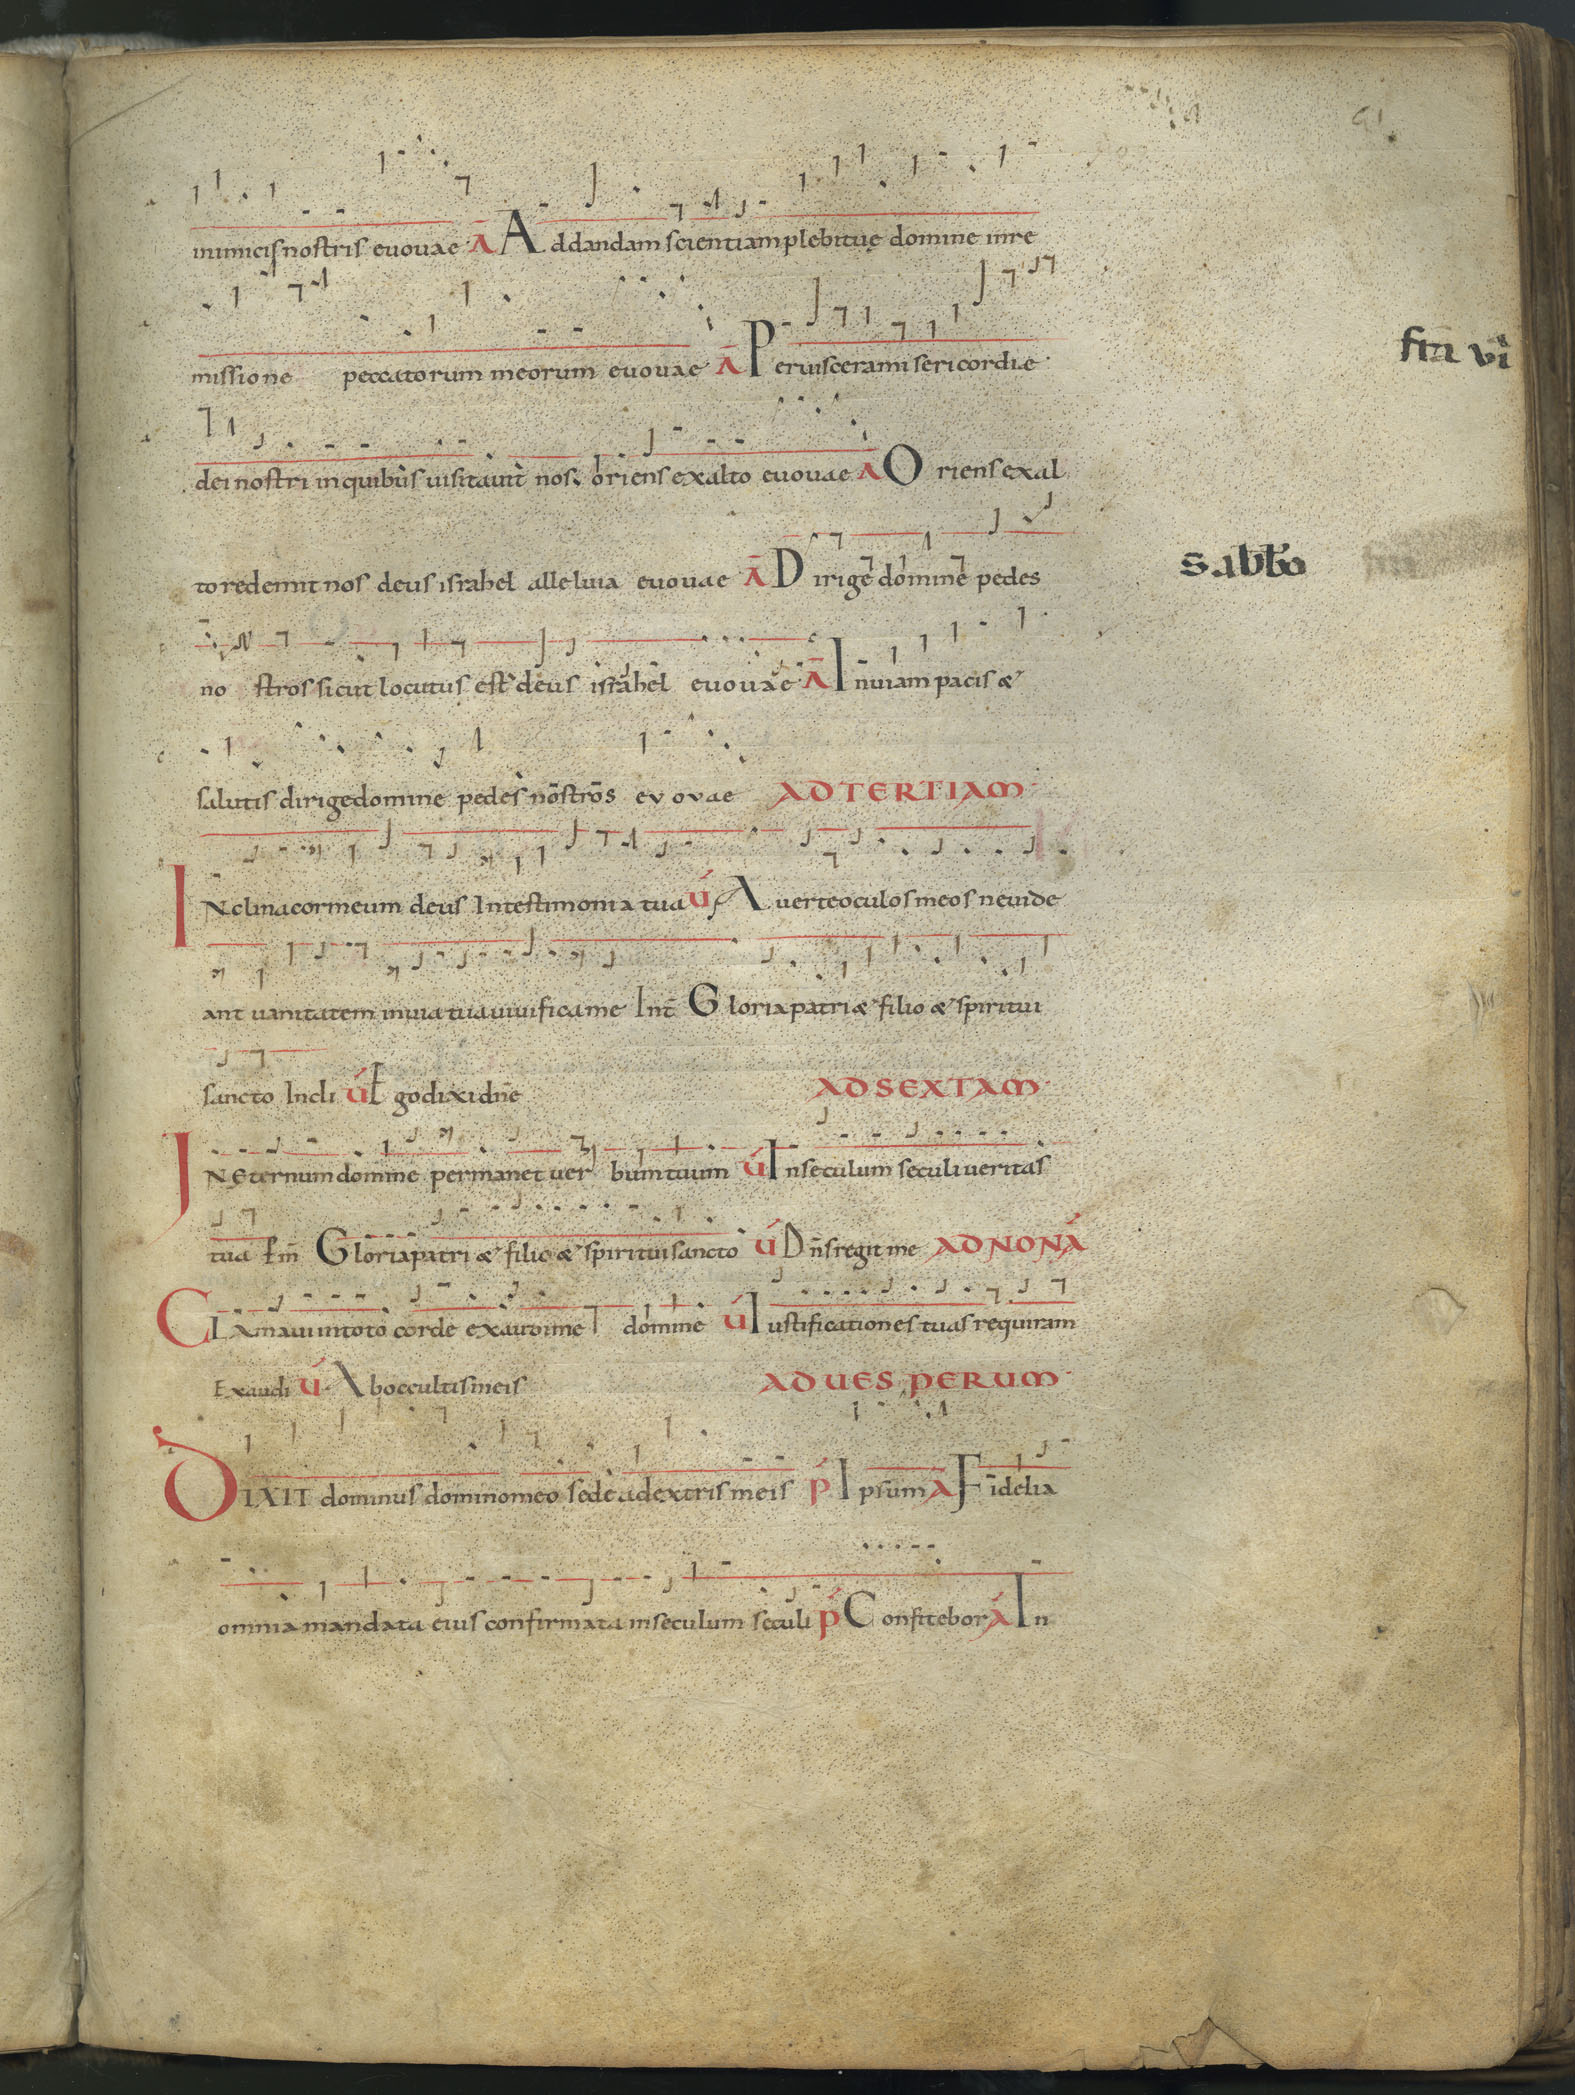 91
inimicis nostris euouae Ā Ad dandam scientiam plebi tuę domine in re
missione peccatorum meorum euouae Ā Per uiscera misericordie
fr̄a vi
dei nostri in quibus uisitauit nos, oriens ex alto euouae Ā Oriens ex al
sabb̄o
to redemit nos deus israhel alleluia euouae Ā Dirige domine pedes
nostros sicut locutus est deus israhel euouae Ā In uiam pacis &
salutis dirige domine pedes nostros euouae AD TERTIAM
INclina cor meum deus In testimonia tua V́ Auerte oculos meos ne uide
ant uanitatem in uia tua uiuifica me Int̄ Gloria patri & filio & spiritui
sancto Incli V́ Ego dixi dn̄e AD SEXTAM
IN Eternum domine permanet uerbum tuum V́ In seculum seculi ueritas
tua Gloria patri & filio & spiritui sancto V́ Dn̄s regit me AD NONĀ
CLAmaui in toto corde exaudi me domine V́ Iustificationes tuas requiram
Exaudi V́ Ab occultis meis AD UESPERUM
DIXIT dominus domino meo sede a dextris meis P̄ Ipsum Ā Fidelia
omnia mandata eius confirmata in seculum seculi P̄ Confitebor Ā In